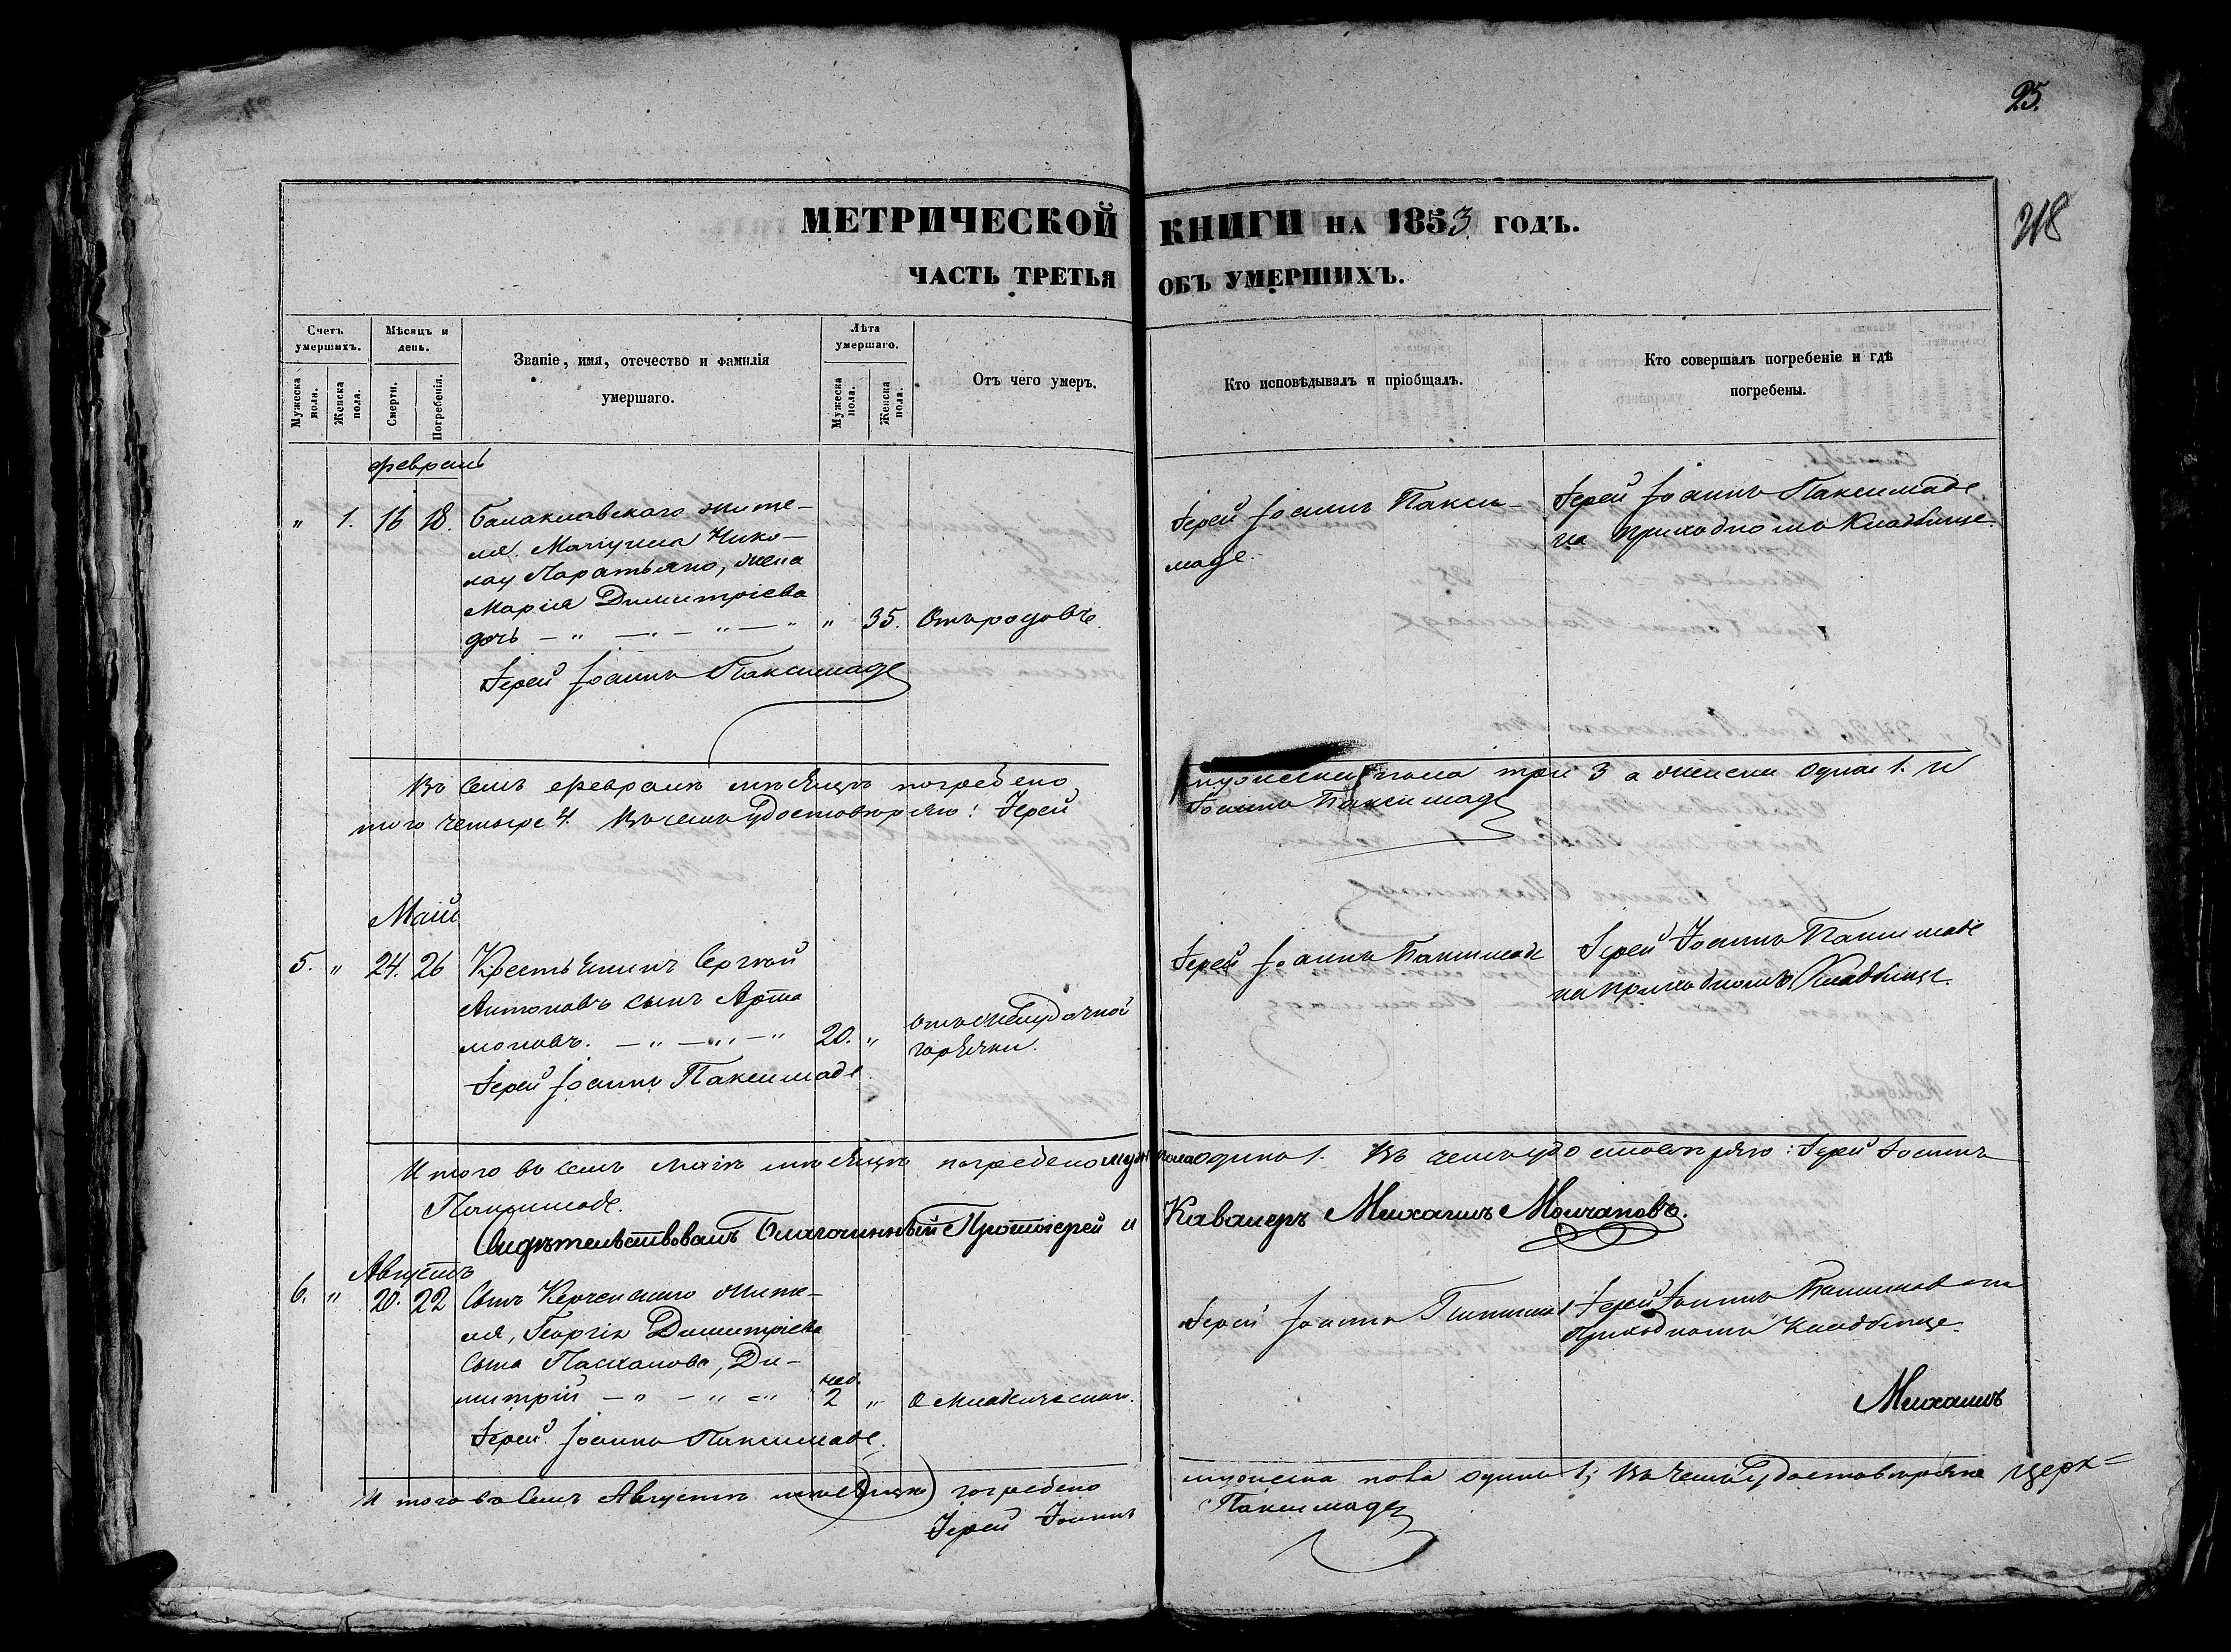 25.
218
МЕТРИЧЕСКОЙ КНИГИ НА 1853 ГОДЪ.
ЧАСТЬ ТРЕТЬЯ ОБЪ УМЕРШИХЪ.
Счетъ умершихъ.
Мѣсяцъ и день.
Званіе, имя, отечество и фамилія умершаго.
Лѣта умершаго.
Отъ чего умеръ.
Кто исповѣдывалъ и пріобщалъ.
Кто совершалъ погребеніе и гдѣ погребены.
Мужеска пола.
Женска пола.
Смерти.
Погребенія.
Мужеска пола.
Женска пола.
Февраль
" 1. 16 18. Балаклавскаго жите-
ля Нико-
лая, жена
Марія Димитріева
дочь — " — " — " — " " 35. Отъ родовъ.
Іерей Іоаннъ Пакси-
маде.
Іерей Іоаннъ Паксимаде
на приходномъ Кладбище.
Іерей Іоаннъ Паксимаде
Въ семъ Февралѣ мѣсяцѣ погребено мужеска пола три 3 а женска одна 1. И
того четыре 4. Въ семъ удостовѣряю: Іерей Іоаннъ Паксимаде
Май
5. " 24. 26 Крестьянинъ Сергѣй
Антоновъ сынъ Арта
моновъ. — " — " — " 20. " Отъ желудочной
горячки.
Іерей Іоаннъ Паксимаде
Іерей Іоаннъ Паксимаде
на приходномъ Кладбище.
Іерей Іоаннъ Паксимаде
Итого въ семъ маіѣ мѣсяцѣ погребено муж. пола одинъ 1. Въ чемъ удостовѣряю: Іерей Іоаннъ
Паксимаде.
Свидѣтельствовалъ Благочинный Протоіерей и Кавалеръ Михаилъ Молчановъ.
Августъ
6. " 20. 22 Сынъ Керченскаго жите-
ля, Георгія Димитріева
сына Пасхалова, Ди-
митрій — " — " — " 2 нед. " Младенческой.
Іерей Іоаннъ
Іерей Іоаннъ
Приходномъ Кладбище.
Михаилъ
Іерей Іоаннъ Паксимаде.
Итого въ семъ Августѣ мѣсяцѣ погребено мужеска пола одинъ 1; Въ чемъ удостовѣряю церк=
Іерей Іоаннъ Паксимаде